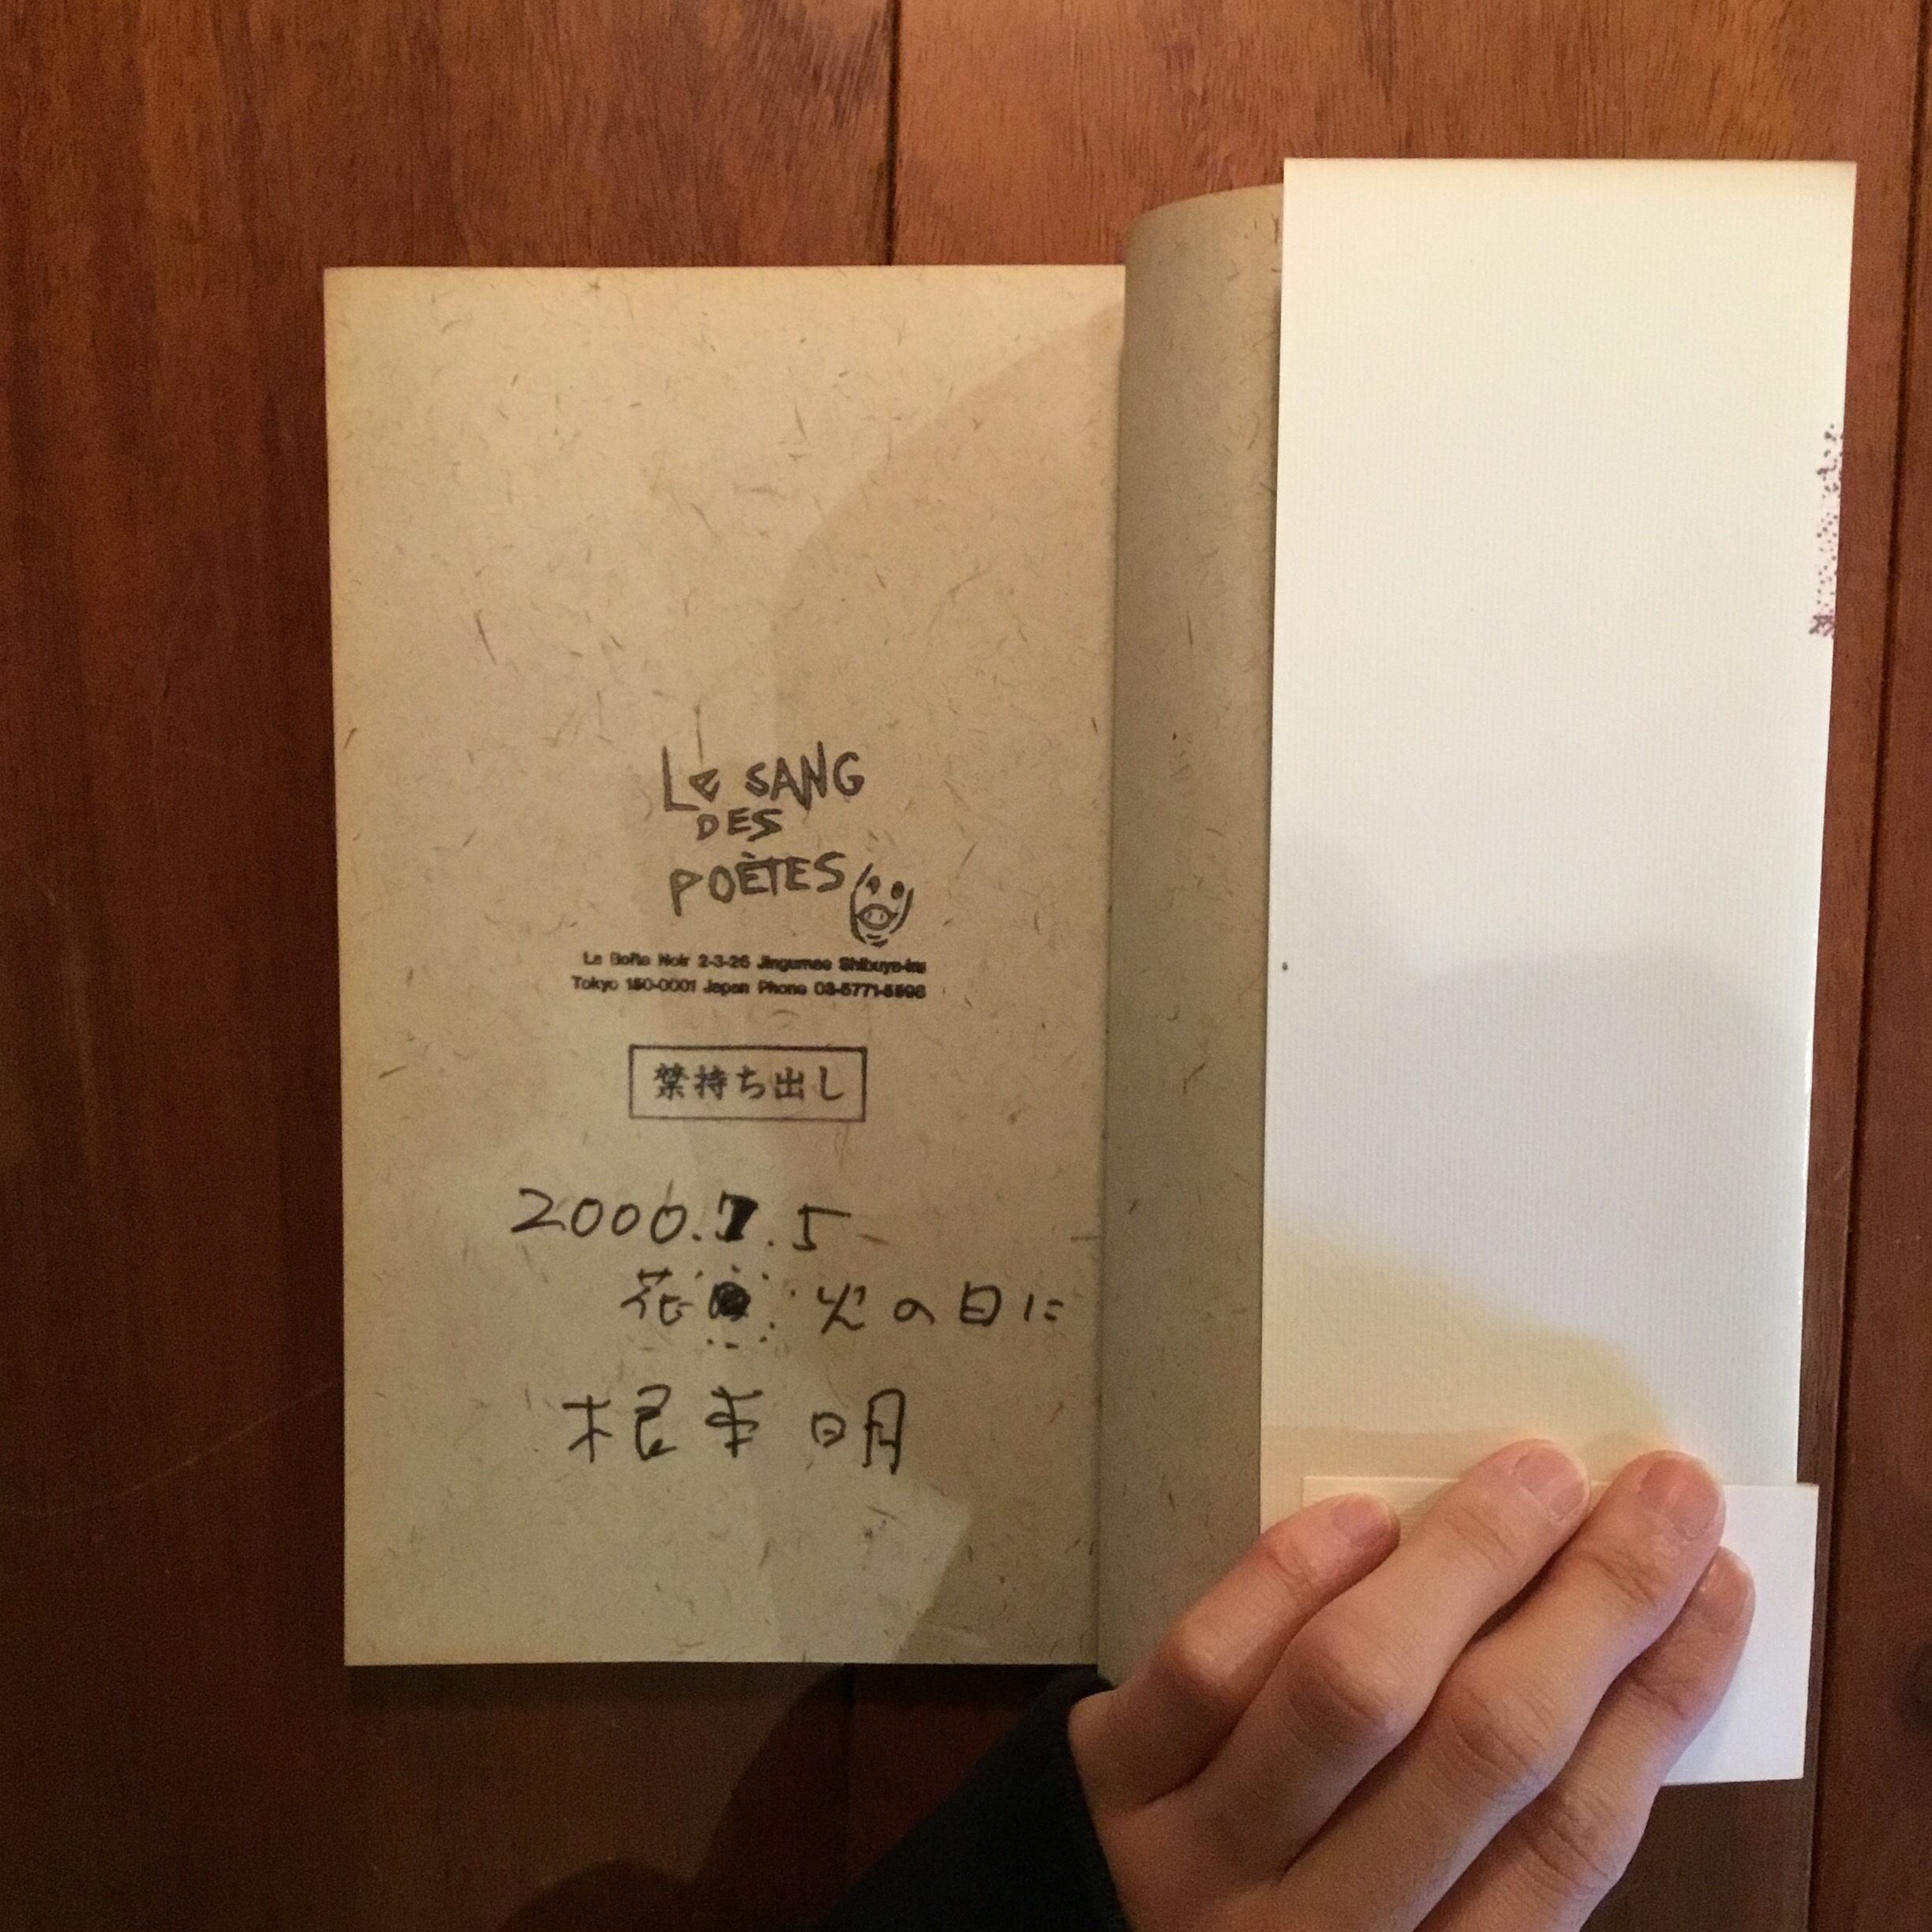 LE SANG
DES
POÈTES
La Boîte Noir 2-3-26 Jingumae Shibuya-ku
Tokyo 150-0001 Japan Phone 03-5771-5596
禁持ち出し
2000.7.5
花火の日に
根本 明